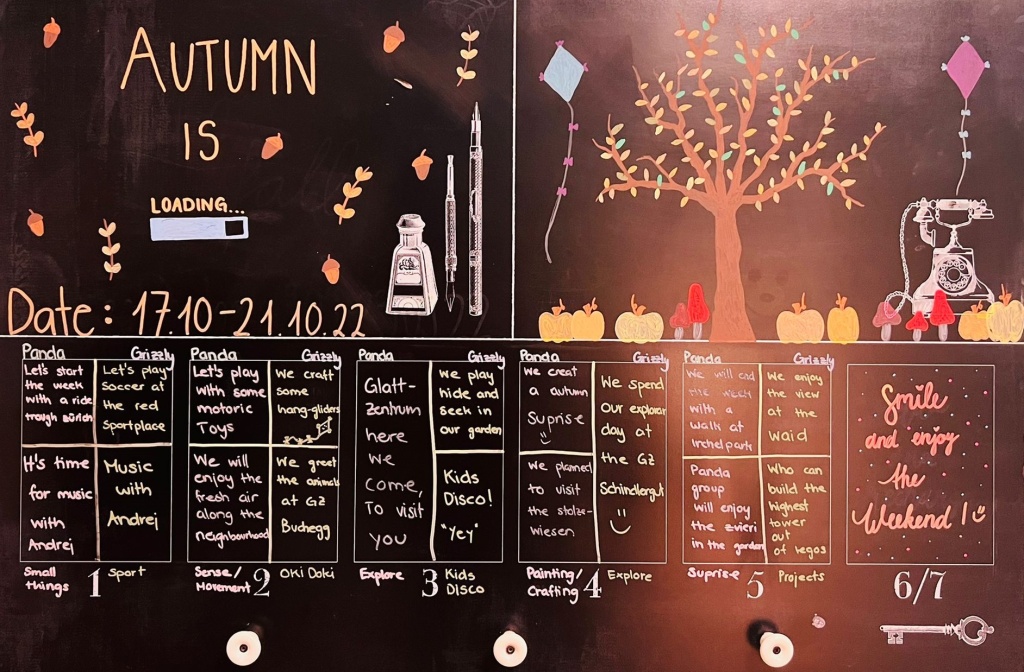 AUTUMN
IS
LOADING...
Date: 17.10-21.10.22
Panda
Let's start
the week
with a ride
trough Zürich
It's time
for music
with
Andrej
Small
things
Grizzly
Let's play
soccer at
the red
sportplace
Music
with
Andrej
Sport
1
Panda
Let's play
with some
motoric
Toys
We will
enjoy the
fresh air
along the
neighbourhood
Sense/
Movement
Grizzly
We craft
some
hang-gliders
We greet
the animals
at GZ
Buchegg
Oki Doki
2
Panda
Glatt-
zentrum
here
we
come,
To visit
you
Explore
Grizzly
We play
hide and
seek in
our garden
Kids
Disco!
"Yey"
Kids
Disco
3
Panda
We creat
a autumn
Suprise
We planned
to visit
the stolze-
wiesen
Painting/
Crafting
Grizzly
We spend
our explorar
day at
the GZ
Schindlergut
Explore
4
Panda
We will end
the week
with a
walk at
irchelpark
Panda
group
will enjoy
the zvieri
in the garden
Suprise
Grizzly
We enjoy
the view
at the
Waid
Who can
build the
highest
tower
out
of legos
Projects
5
Smile
and enjoy
the
Weekend!
6/7